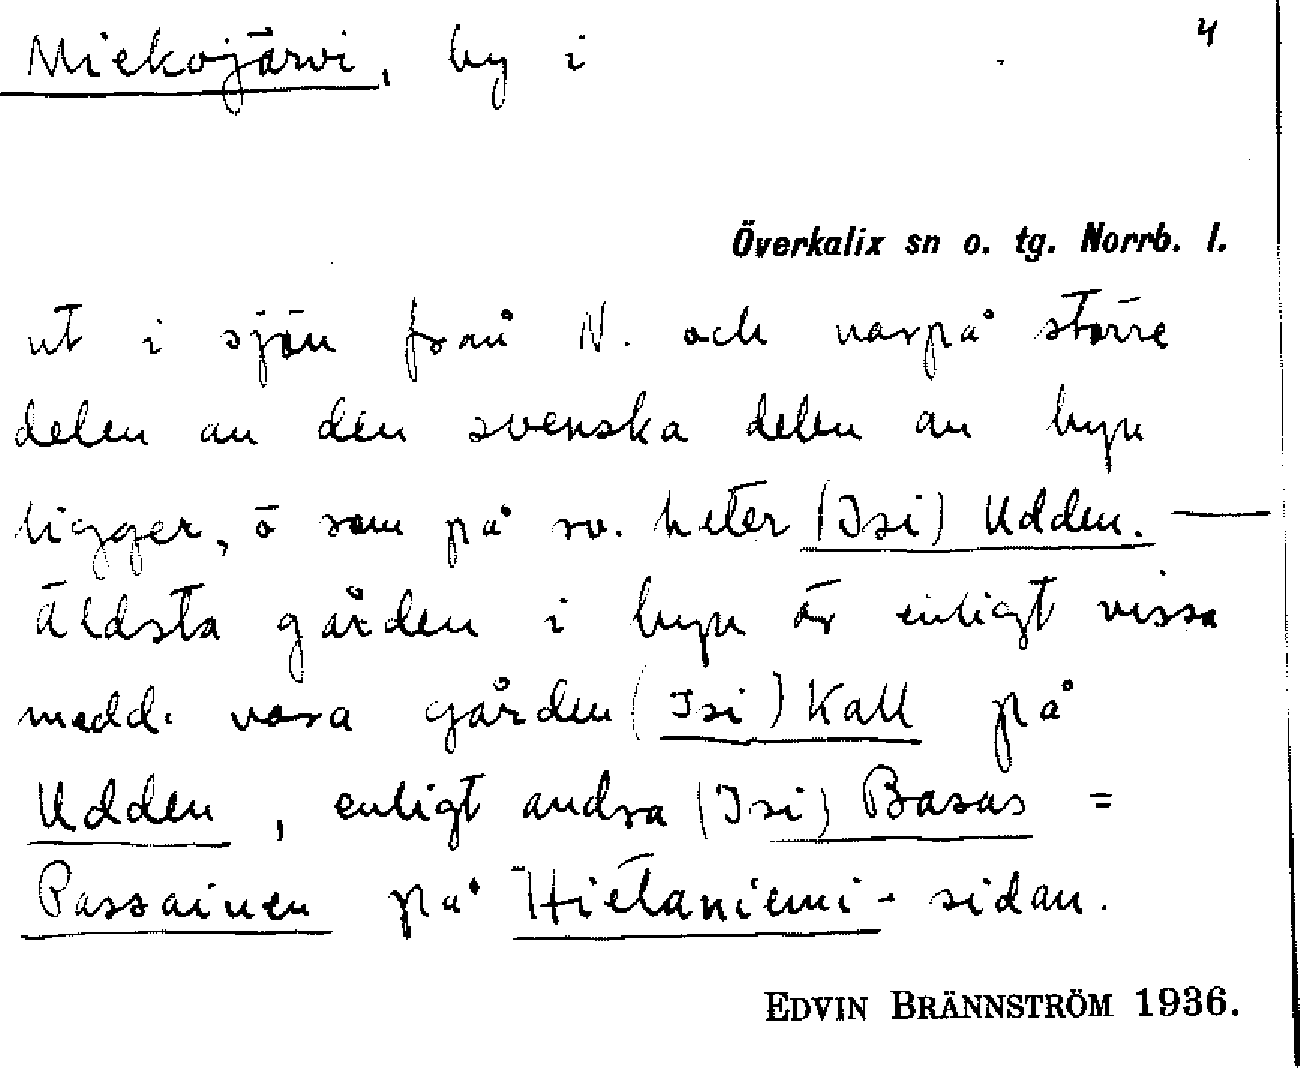 Miekojärvi, by i
4
Överkalix sn o. tg. Norrb. l.
ut i sjön från N. och varpå större
delen av den svenska delen av byn
ligger, o som på sv. heter (Isi) Udden. —
Äldsta gården i byn är enligt vissa
medd. vara gården (Isi) Kall på
Udden, enligt andra (Isi) Basas =
Passainen på Hietaniemi-sidan.
EDVIN BRÄNNSTRÖM 1936.